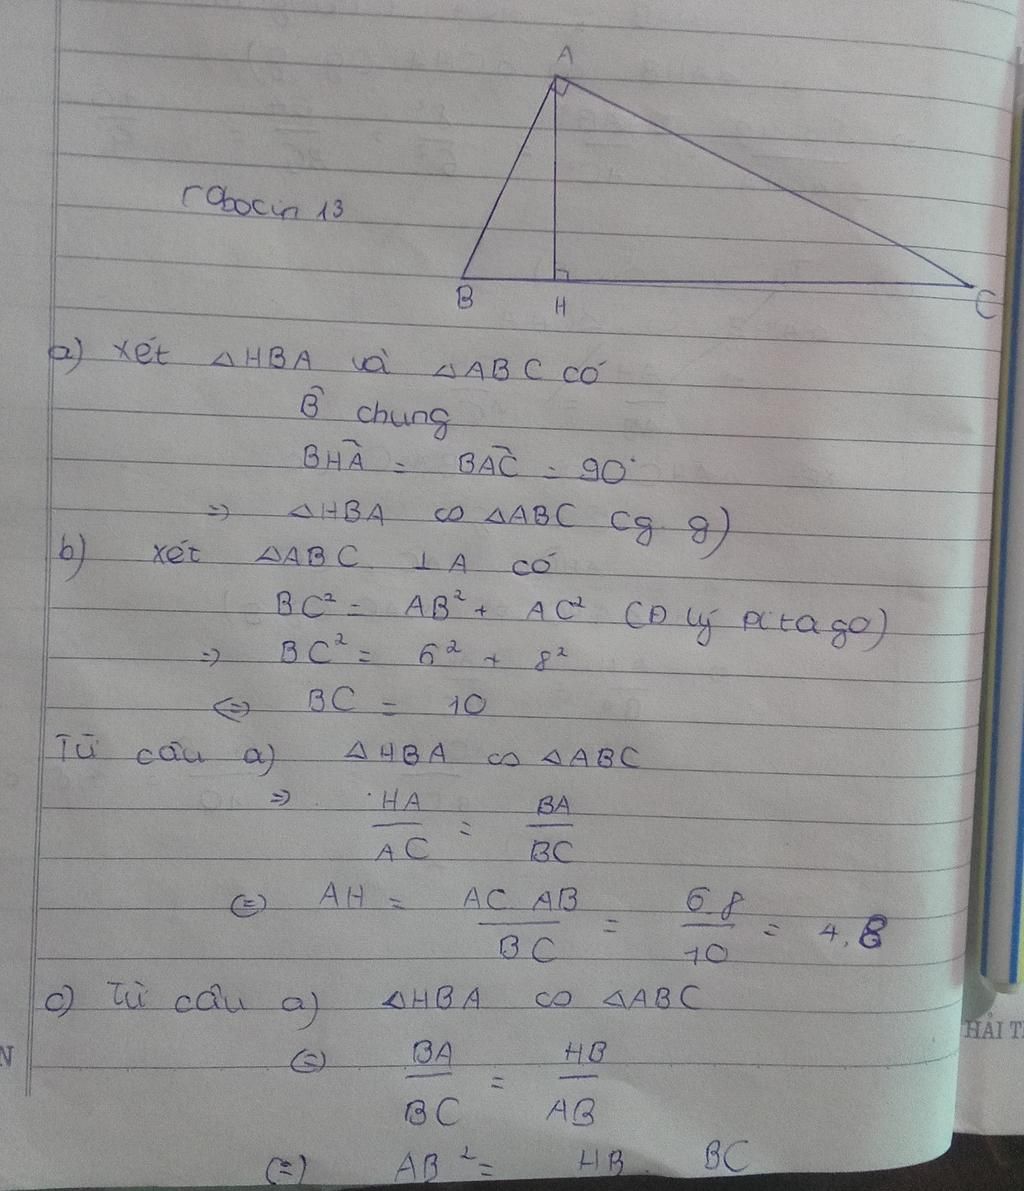 A
robocin 13
B H C
a) xét △HBA và △ABC có
B̂ chung
BHÂ = BAĈ = 90°
=> △HBA ∽ △ABC (g g)
b) xét △ABC ⊥ A có
BC² = AB² + AC² (Đ lý pitago)
=> BC² = 6² + 8²
<=> BC = 10
Từ câu a) △HBA ∽ △ABC
=> HA/AC = BA/BC
<=> AH = AC AB/BC = 6 8/10 = 4,8
c) Từ câu a) △HBA ∽ △ABC
<=> BA/BC = HB/AB
<=> AB² = HB . BC
HẢI
N